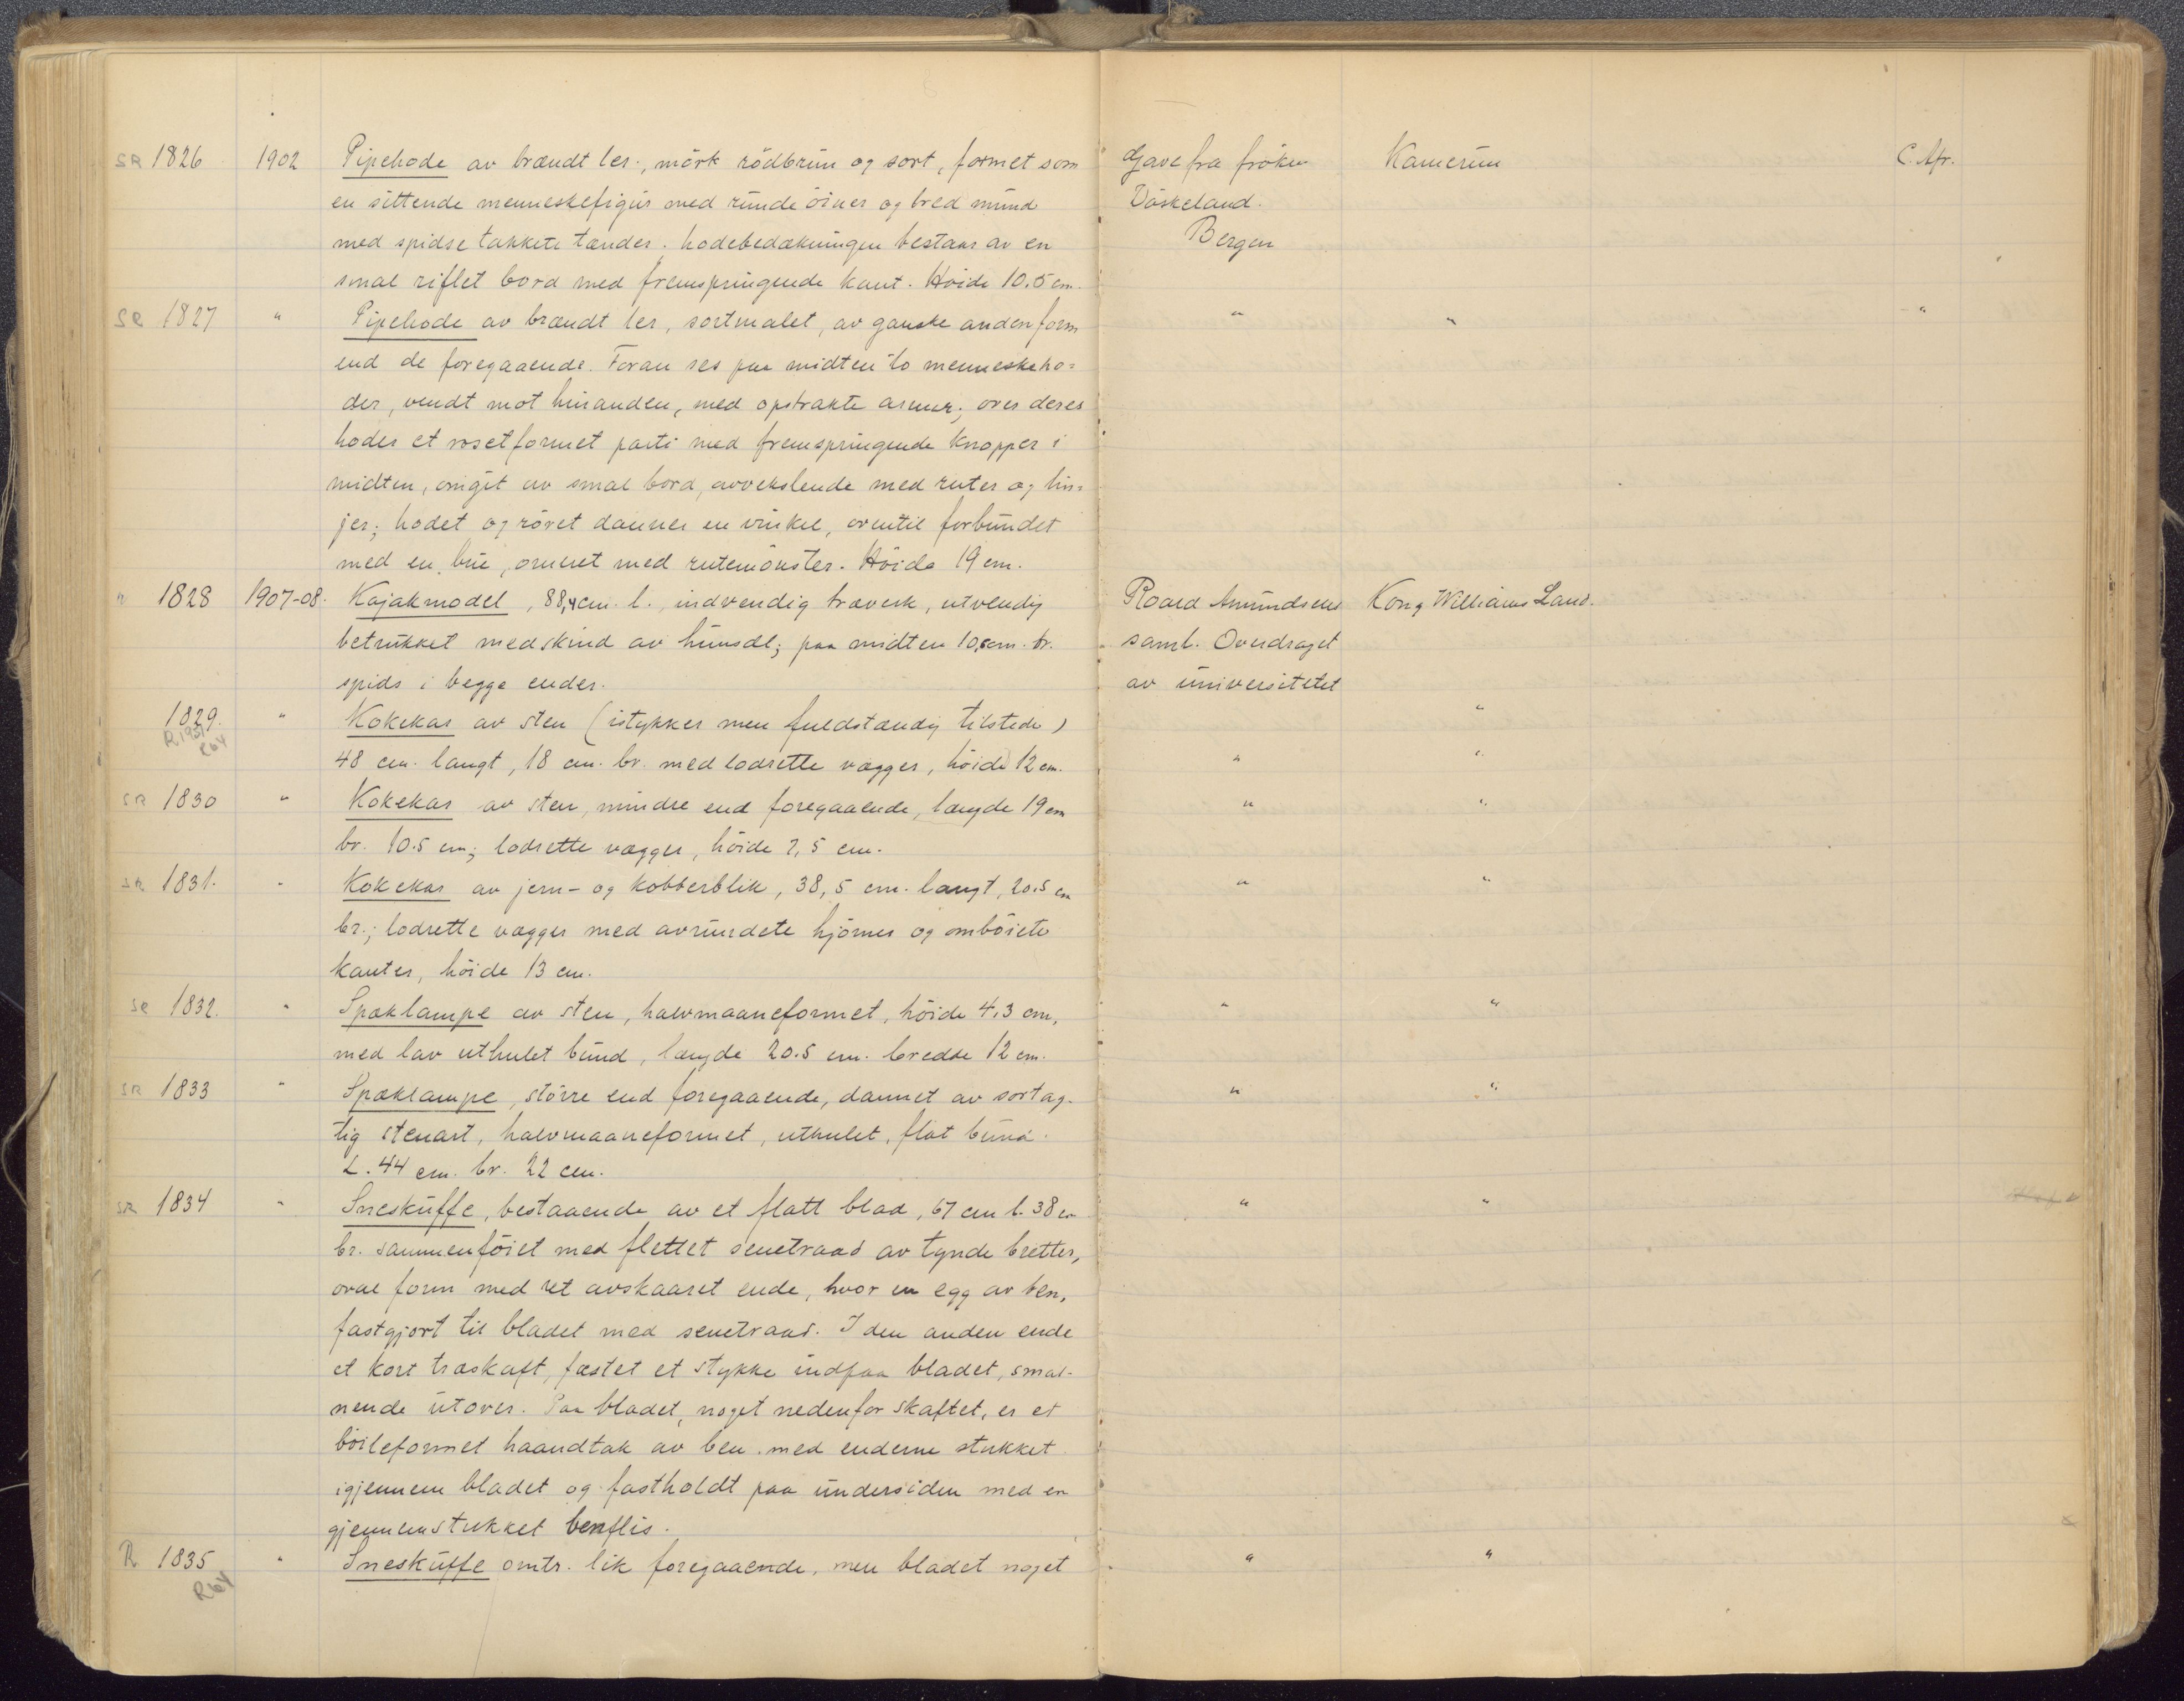 SR 1826 1902 Pipehode av brændt ler, mørk rödbrun og sort, formet som Gave fra fröken Kamerun C. Afr.
en sittende menneskefigur med runde öiner og bred mund Våskeland.
med spidse takkete tænder. Hodebedækningen bestaar av en Bergen
smal riflet bord med fremspringende kant. Höide 10.5 cm.
SR 1827 " Pipehode av brændt ler, sortmalet, av ganske anden form " " "
end de foregaaende. Foran ses paa midten to menneskeho-
der, vendt mot hinanden, med opstrakte armer; over deres
hoder et rosetformet parti med fremspringende knopper i
midten, omgit av smal bord, avvekslende med ruter og lin-
jer; hodet og röret danner en vinkel, oventil forbundet
med en bue, ornert med rutemönster. Höide 19 cm.
" 1828 1907-08. Kajakmodel, 88,4 cm. l., indvendig træverk, utvendig Roald Amundsens Kong Williams Land.
betrukket med skind av hunsæl; paa midten 10,5 cm. br. saml. Overdraget
spids i begge ender. av universitetet
1829. " Kokekar av sten (istykker men fuldstændig tilstede) "
R 1951
R64
48 cm. langt, 18 cm. br. med lodrette vægger, höide 12 cm. " "
SR 1830 " Kokekar av sten, mindre end foregaaende, længde 19 cm " "
br. 10.5 cm; lodrette vægger, höide 7,5 cm.
SR 1831. " Kokekar av jern- og kobberblik, 38,5 cm. langt, 20.5 cm " "
br.; lodrette vægger med avrundete hjörner og omböiete
kanter, höide 13 cm.
SR 1832. " Spæklampe av sten, halvmaaneformet, höide 4,3 cm, " "
med lav uthulet bund, længde 20.5 cm. bredde 12 cm.
SR 1833 " Spæklampe, större end foregaaende, dannet av sortag- " "
tig stenart, halvmaaneformet, uthulet, flat bund.
L. 44 cm. br. 22 cm.
SR 1834 " Sneskuffe, bestaaende av et flatt blad, 67 cm l. 38 cm " "
br. sammenföiet med flettet senetraad av tynde bretter,
oval form med ret avskaaret ende, hvor en egg av ben,
fastgjort til bladet med senetraad. I den anden ende
et kort træskaft, fæstet et stykke indpaa bladet, smal-
nende utover. Paa bladet, noget nedenfor skaftet, er et
böileformet haandtak av ben med enderne stukket
igjennem bladet og fastholdt paa undersiden med en
gjennemstukket benflis.
R 1835 " Sneskuffe omtr. lik foregaaende, men bladet noget " "
R64